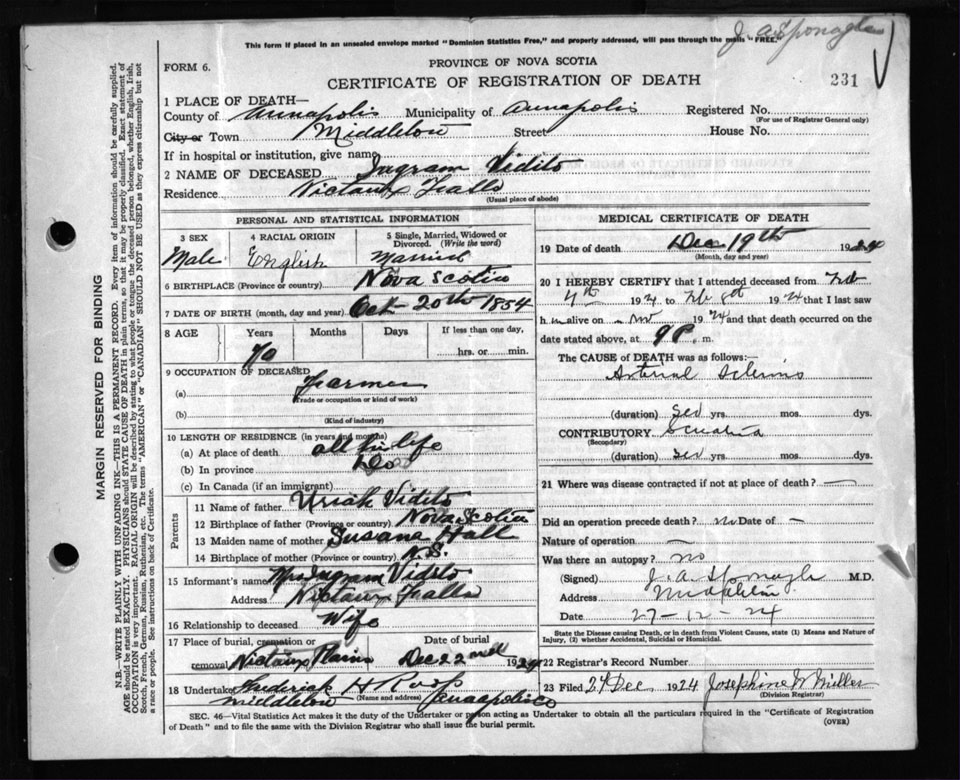 J. A. Sponagle
This form if placed in an unsealed envelope marked "Dominion Statistics Free," and properly addressed, will pass through the mails "FREE."
PROVINCE OF NOVA SCOTIA
FORM 6.
CERTIFICATE OF REGISTRATION OF DEATH
231
1 PLACE OF DEATH—
County of Annapolis Municipality of Annapolis Registered No.
(For use of Registrar General only)
City or Town Middleton Street House No.
If in hospital or institution, give name
2 NAME OF DECEASED Ingram Vidito
Residence Nictaux Falls
(Usual place of abode)
PERSONAL AND STATISTICAL INFORMATION
3 SEX 4 RACIAL ORIGIN 5 Single, Married, Widowed or
Divorced. (Write the word)
Male English Married
6 BIRTHPLACE (Province or country) Nova Scotia
7 DATE OF BIRTH (month, day and year) Oct 20th 1854
8 AGE Years Months Days If less than one day,
70 hrs. or min.
9 OCCUPATION OF DECEASED
(a) Farmer
(Trade or occupation or kind of work)
(b)
(Kind of industry)
10 LENGTH OF RESIDENCE (in years and months)
(a) At place of death all his life
(b) In province Do
(c) In Canada (if an immigrant)
Parents
11 Name of father Uriah Vidito
12 Birthplace of father (Province or country) Nova Scotia
13 Maiden name of mother Susana Hall
14 Birthplace of mother (Province or country) N.S.
15 Informant's name Mrs Ingram Vidito
Address Nictaux Falls
16 Relationship to deceased Wife
17 Place of burial, cremation or Date of burial
removal Nictaux Plains Dec 22nd 1924
18 Undertaker H Roop
(Name and address)
Middleton Annapolis Co
MEDICAL CERTIFICATE OF DEATH
19 Date of death Dec 19th 1924
(Month, day and year)
20 I HEREBY CERTIFY that I attended deceased from Feb
4th 1924 to Feb 8th 1924 that I last saw
h m alive on 1924 and that death occurred on the
date stated above, at 9 P. m.
The CAUSE of DEATH was as follows:—
Arterial Sclerosis
(duration) sev yrs. mos. dys.
CONTRIBUTORY
(Secondary)
(duration) sev yrs. mos. dys.
21 Where was disease contracted if not at place of death? —
Did an operation precede death? no Date of —
Nature of operation —
Was there an autopsy? no
(Signed) J. A. Sponagle M.D.
Address Middleton
Date 27-12-24
State the Disease causing Death, or in death from Violent Causes, state (1) Means and Nature of
Injury, (2) whether Accidental, Suicidal or Homicidal.
22 Registrar's Record Number
23 Filed 27 Dec 1924 Josephine M Miller
(Division Registrar)
SEC. 46—Vital Statistics Act makes it the duty of the Undertaker or person acting as Undertaker to obtain all the particulars required in the "Certificate of Registration
of Death" and to file the same with the Division Registrar who shall issue the burial permit.
(OVER)
MARGIN RESERVED FOR BINDING
N.B.—WRITE PLAINLY WITH UNFADING INK—THIS IS A PERMANENT RECORD. Every item of information should be carefully supplied.
AGE should be stated EXACTLY. PHYSICIANS should STATE CAUSE OF DEATH in plain terms, so that it may be properly classified. Exact statement of
OCCUPATION is very important. RACIAL ORIGIN will be described by stating to what people or tongue the deceased person belonged, whether English, Irish,
Scotch, French, German, Russian, Ruthenian, etc. The terms "AMERICAN" or "CANADIAN" SHOULD NOT BE USED as they express citizenship but not
a race or people. See instructions on back of Certificate.